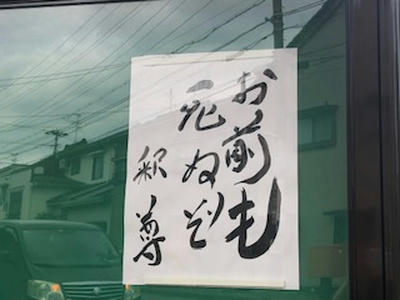 お前も
死ぬぞ
釈尊